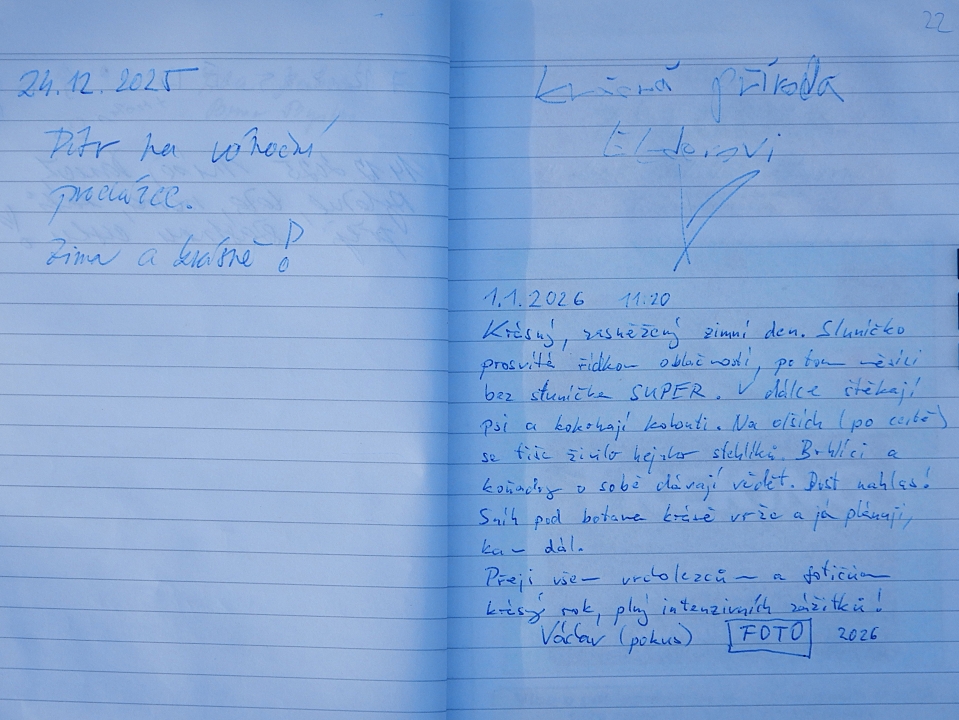 24.12.2025
Petr na vánoční
procházce.
Zima a krásně!
22
Krásná příroda
1.1.2026 11:20
Krásný, zasněžený zimní den. Sluníčko
prosvítá řídkou oblačností, po tom měsíci
bez sluníčka SUPER. V dálce štěkají
psi a kokrhají kohouti. Na olších (po cestě)
se tiše živilo hejnko stehlíků. Brhlíci a
koňadry o sobě dávají vědět. Dost nahlas!
Sníh pod botama krásně vrže a já plánuji,
kam dál.
Přeji všem vrcholezcům a fotičům
krásný rok, plný intenzivních zážitků!
Václav (pokus) FOTO 2026